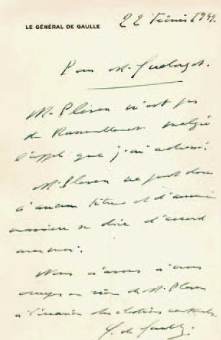 LE GÉNÉRAL DE GAULLE
22 Février 1951.
Pour M.
M. Pleven n'est pas
du Rassemblement malgré
l'appel que j'ai adressé.
M. Pleven ne peut donc
à aucun titre et d'aucune
manière se dire d'accord
avec moi.
Nous n'avons
en rien de M. Pleven
à l'occasion des élections
G. de Gaulle